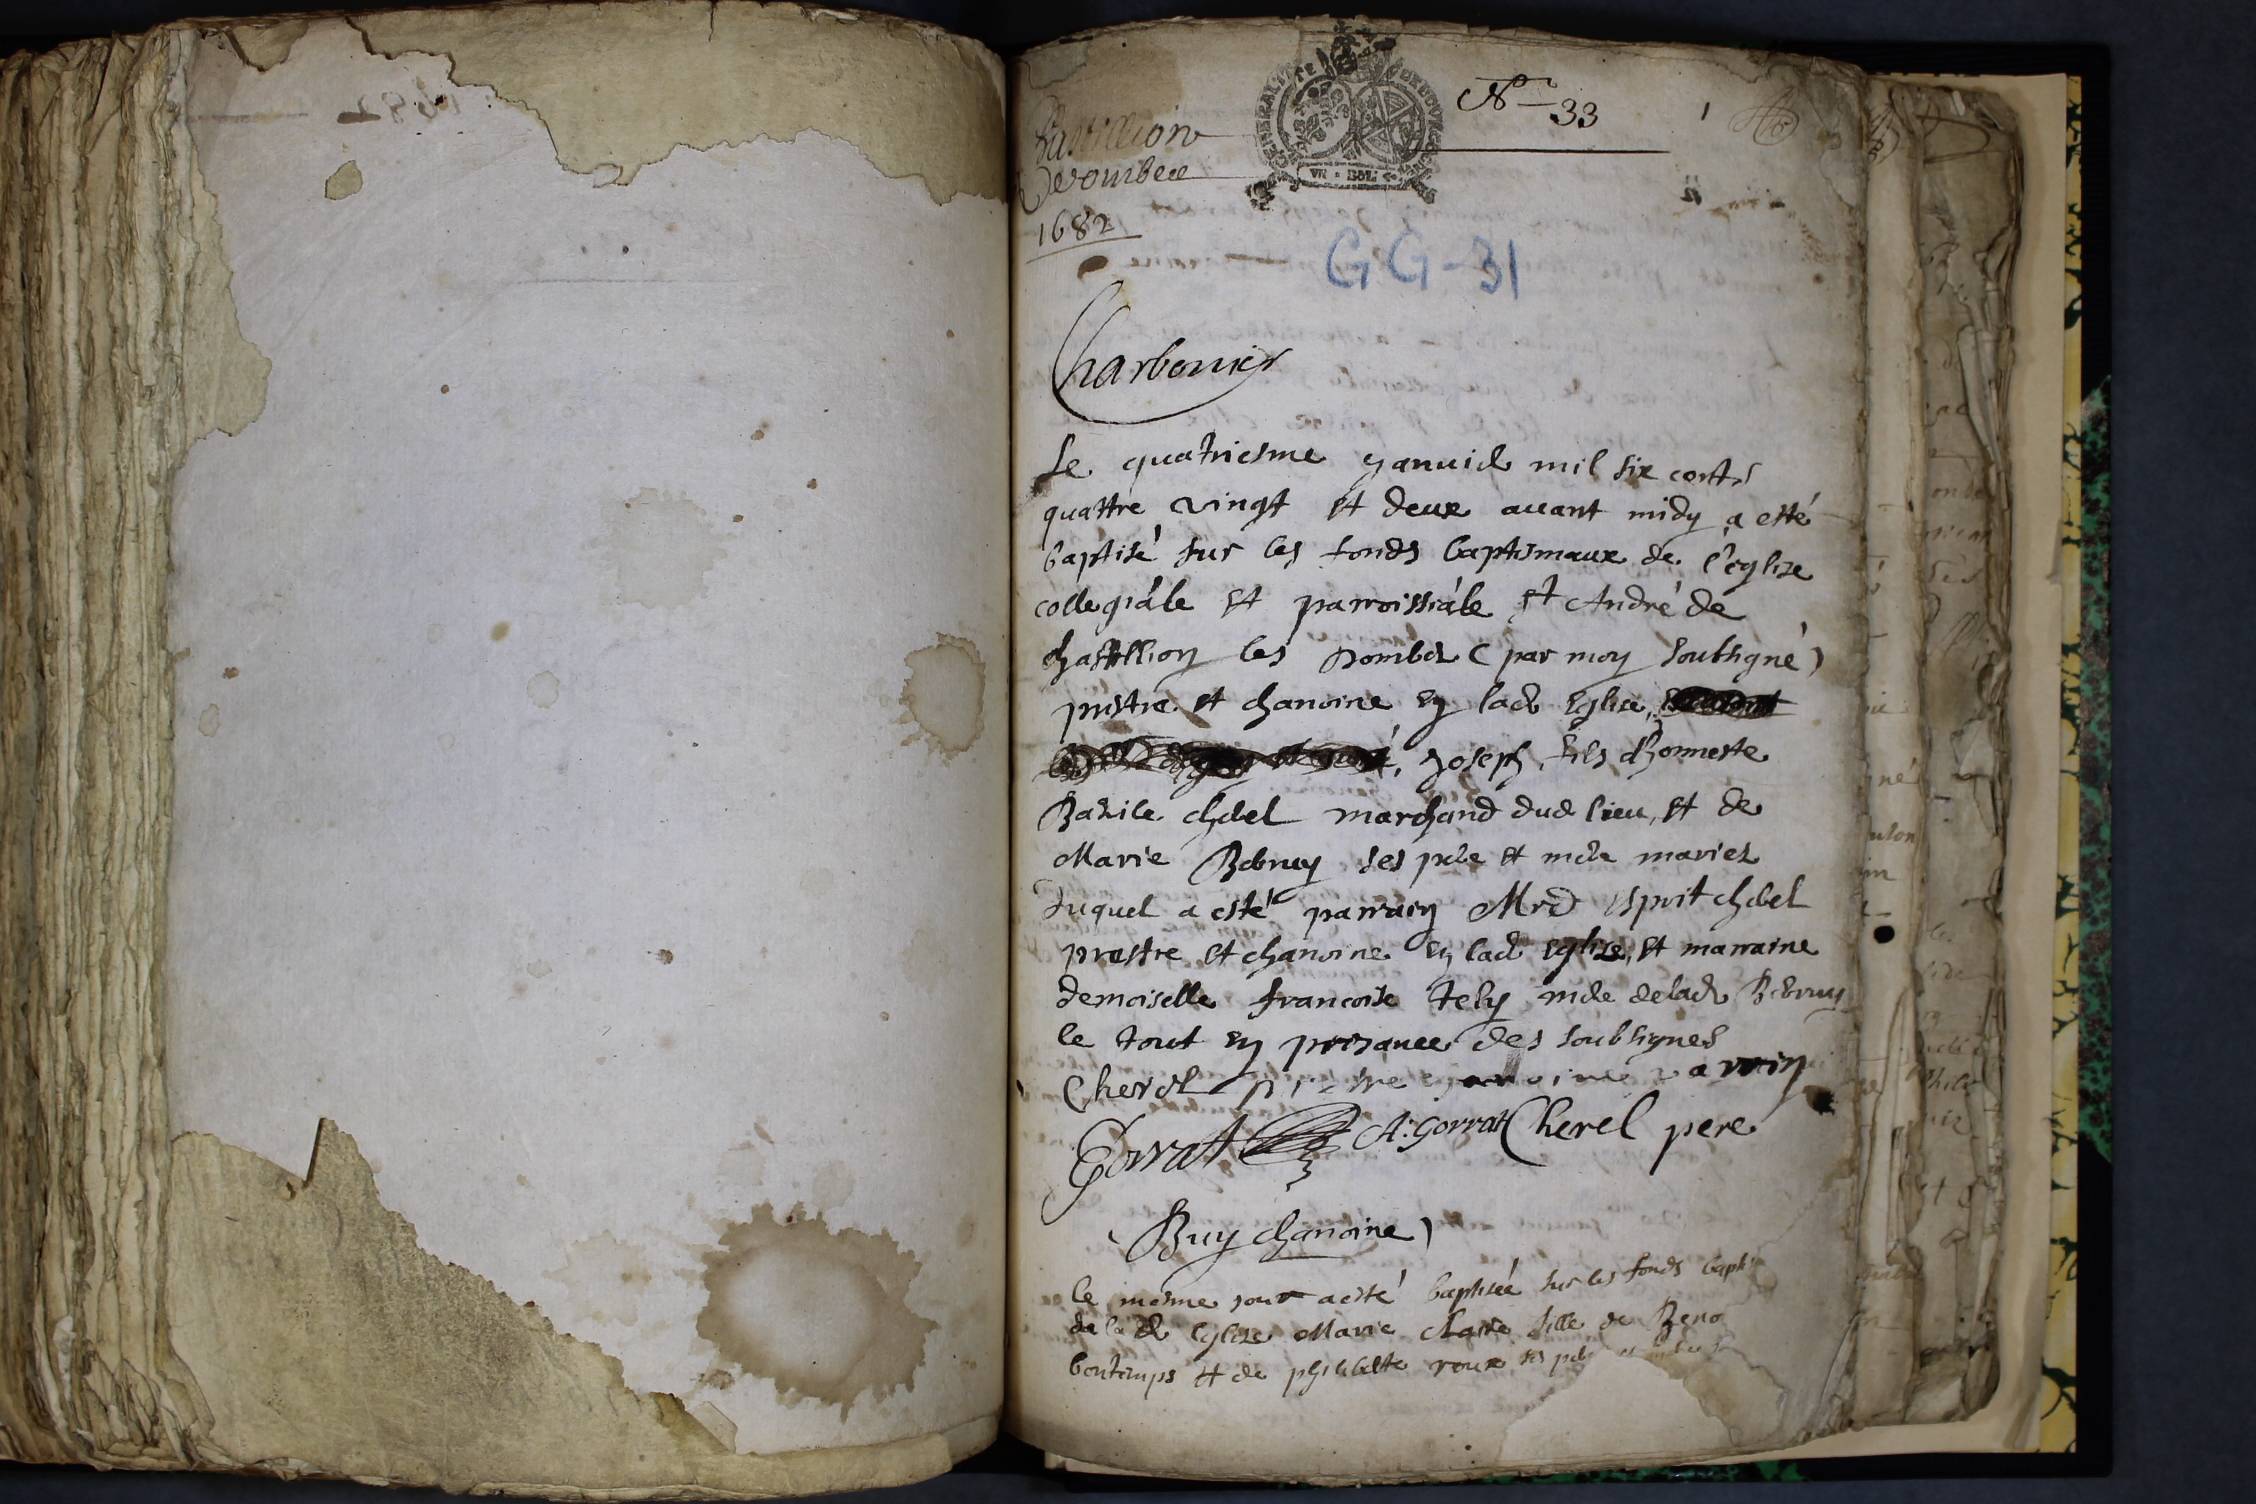 No 33
1
Chastillion
Dedombee
1682
GENERALITE DE BOVRGOGNE
VN SOL
GG-31
Charbonier
Le quatriesme yanuier mil six cents
quattre vingt et deux auant midy a esté
baptisé sur les fonds baptismaux de l'eglize
collegiále et parroissiále st André de
chastillion les dombes (par moy soubsigné)
prestre et chanoine en lad eglize,
Joseph, fils d'honneste
Bazile cherel marchand dud lieu, et de
Marie Bebruy ses pere et mere mariez
duquel a esté parrain Mre esprit cherel
prestre et chanoine en lad eglize, et marraine
demoiselle francoise tely mere delad Bebruy
le tout en presance des soubsignes
Cherel prestre chanoine parrain
Gorrat A. Gorrat Cherel pere
Buy chanoine)
le mesme jour a esté baptisée sur les fonds bapti
de la d eglize Marie Claire fille de Beno
bontemps et de philiberte roux ses pere et mere